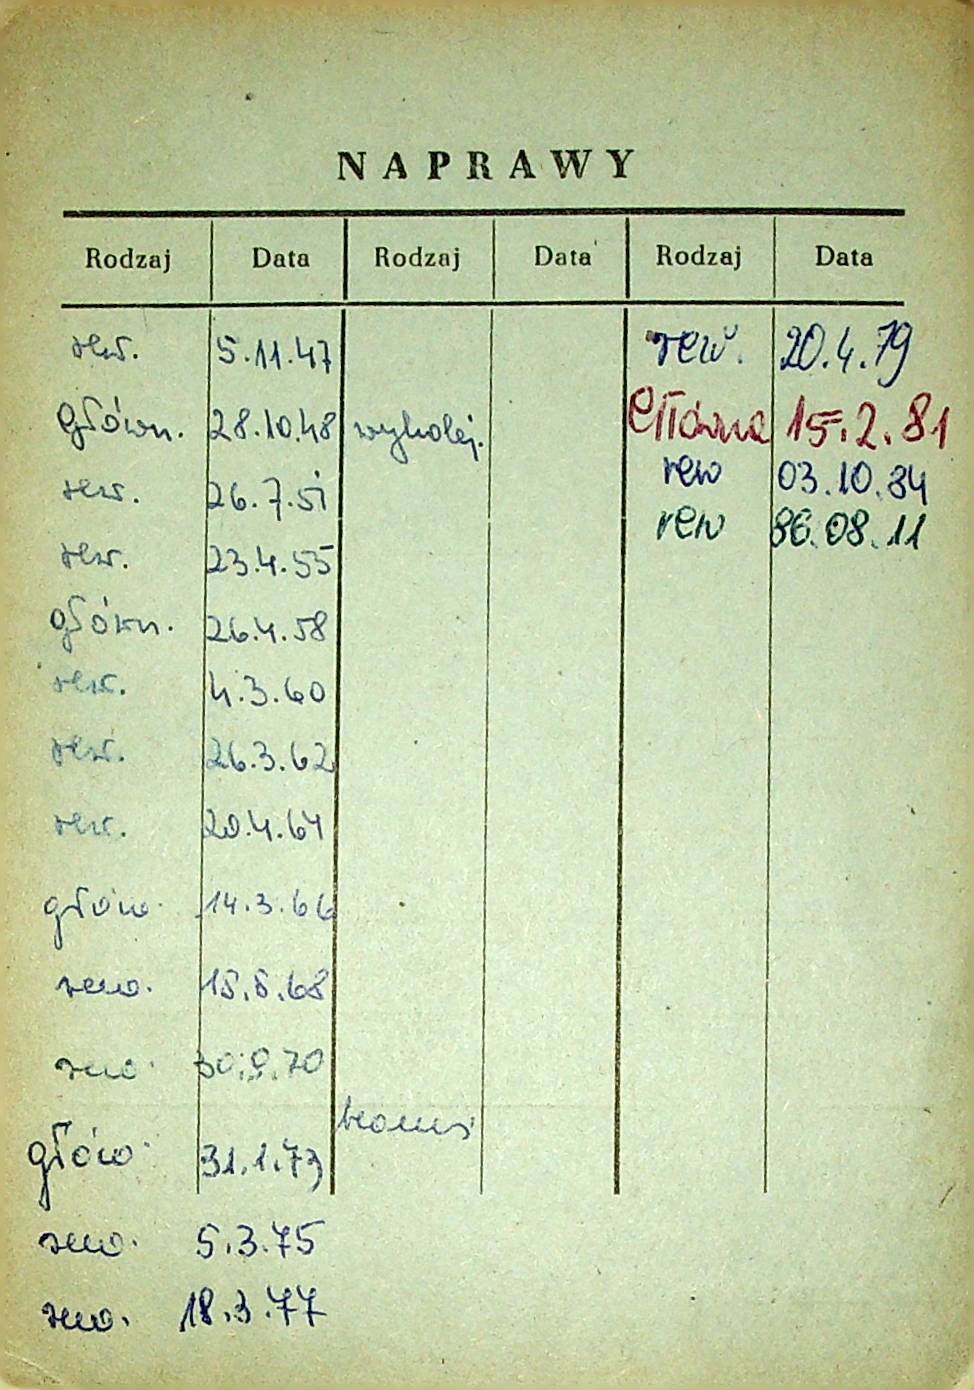 NAPRAWY
Rodzaj Data Rodzaj Data Rodzaj Data
rew. 5.11.47 rew. 20.4.79
główn. 28.10.48 wykolej. Główna 15.2.81
rew. 26.7.51 rew 03.10.84
rew 86.08.11
rew. 23.4.55
główn. 26.4.58
rew. 4.3.60
rew. 26.3.62
rew. 20.4.64
głów. 14.3.66
rew. 15.5.68
rew. 30.9.70
głów. 31.1.73
rew. 5.3.75
rew. 18.3.77